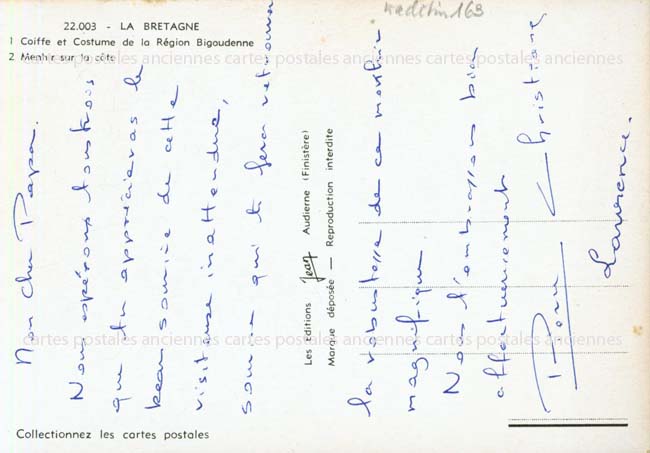 22.003 - LA BRETAGNE
1 Coiffe et Costume de la Région Bigoudenne
2 Menhir sur la côte
kadelin163
cartes postales anciennes cartes postales anciennes cartes postales anciennes
Mon cher Papa.
Nous espérons tous trois
que tu apprécieras le
beau sourire de cette
visiteuse inattendue,
sourire qui te fera retrouver
Les Editions Jean Audierne (Finistère)
Marque déposée — Reproduction interdite
la robustesse de ce
magnifique
Nous t'embrassons bien
affectueusement
Christiane
Laurence.
cartes postales anciennes cartes postales anciennes cartes postales anciennes
Collectionnez les cartes postales